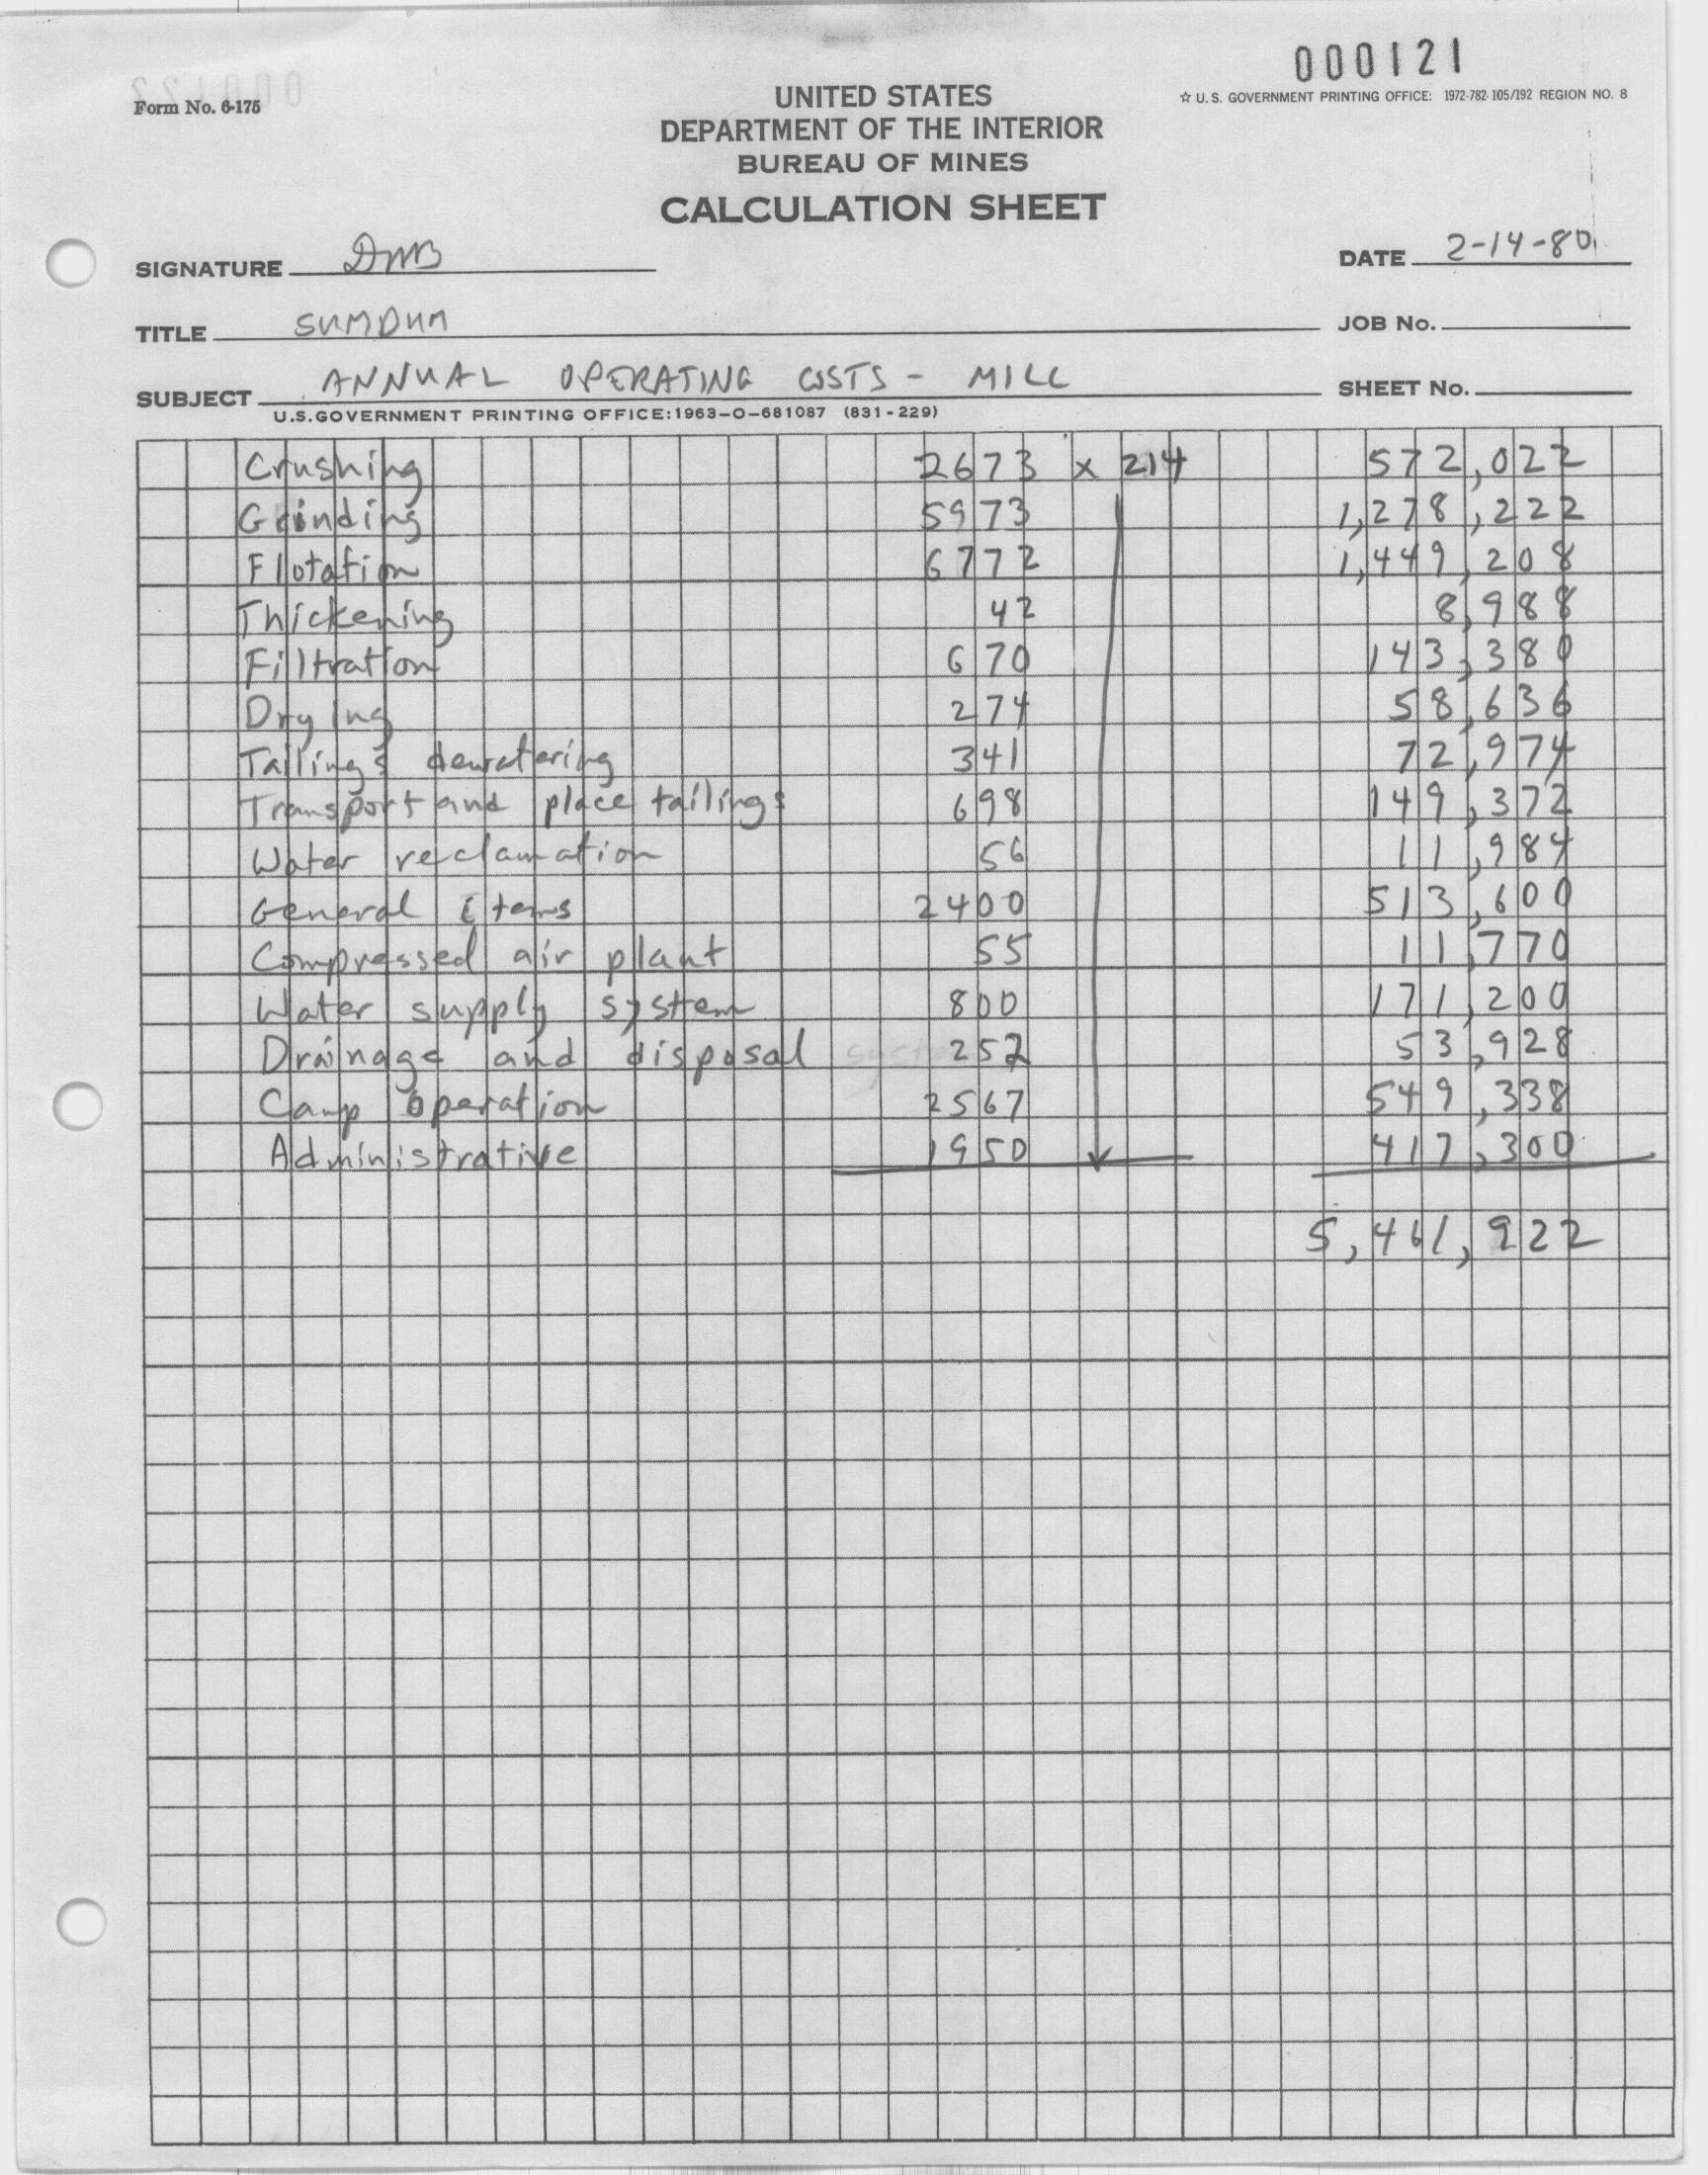 000121
Form No. 6-175
☆ U. S. GOVERNMENT PRINTING OFFICE: 1972-782-105/192 REGION NO. 8
UNITED STATES
DEPARTMENT OF THE INTERIOR
BUREAU OF MINES
CALCULATION SHEET
SIGNATURE DMB
DATE 2-14-80
TITLE SUMDUM
JOB No.
SUBJECT ANNUAL OPERATING COSTS - MILL
SHEET No.
U.S.GOVERNMENT PRINTING OFFICE:1963-O-681087 (831-229)
Crushing 2673 x 214 572,022
Grinding 5973 1,278,222
Flotation 6772 1,449,208
Thickening 42 8,988
Filtration 670 143,380
Drying 274 58,636
Tailings dewatering 341 72,974
Transport and place tailings 698 149,372
Water reclamation 56 11,984
General Items 2400 513,600
Compressed air plant 55 11,770
Water supply system 800 171,200
Drainage and disposal 252 53,928
Camp operation 2567 549,338
Administrative 1950 417,300
5,461,922